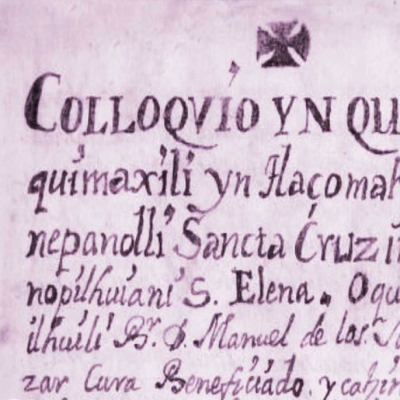 COLLOQVIO YN QU
quimaxili yn tlaçomah
nepanolli Sancta Cruz i
nopilhuiani S. Elena. Oqu
ilhuili Br. D. Manuel de los S
zar Cura Beneficiado, y